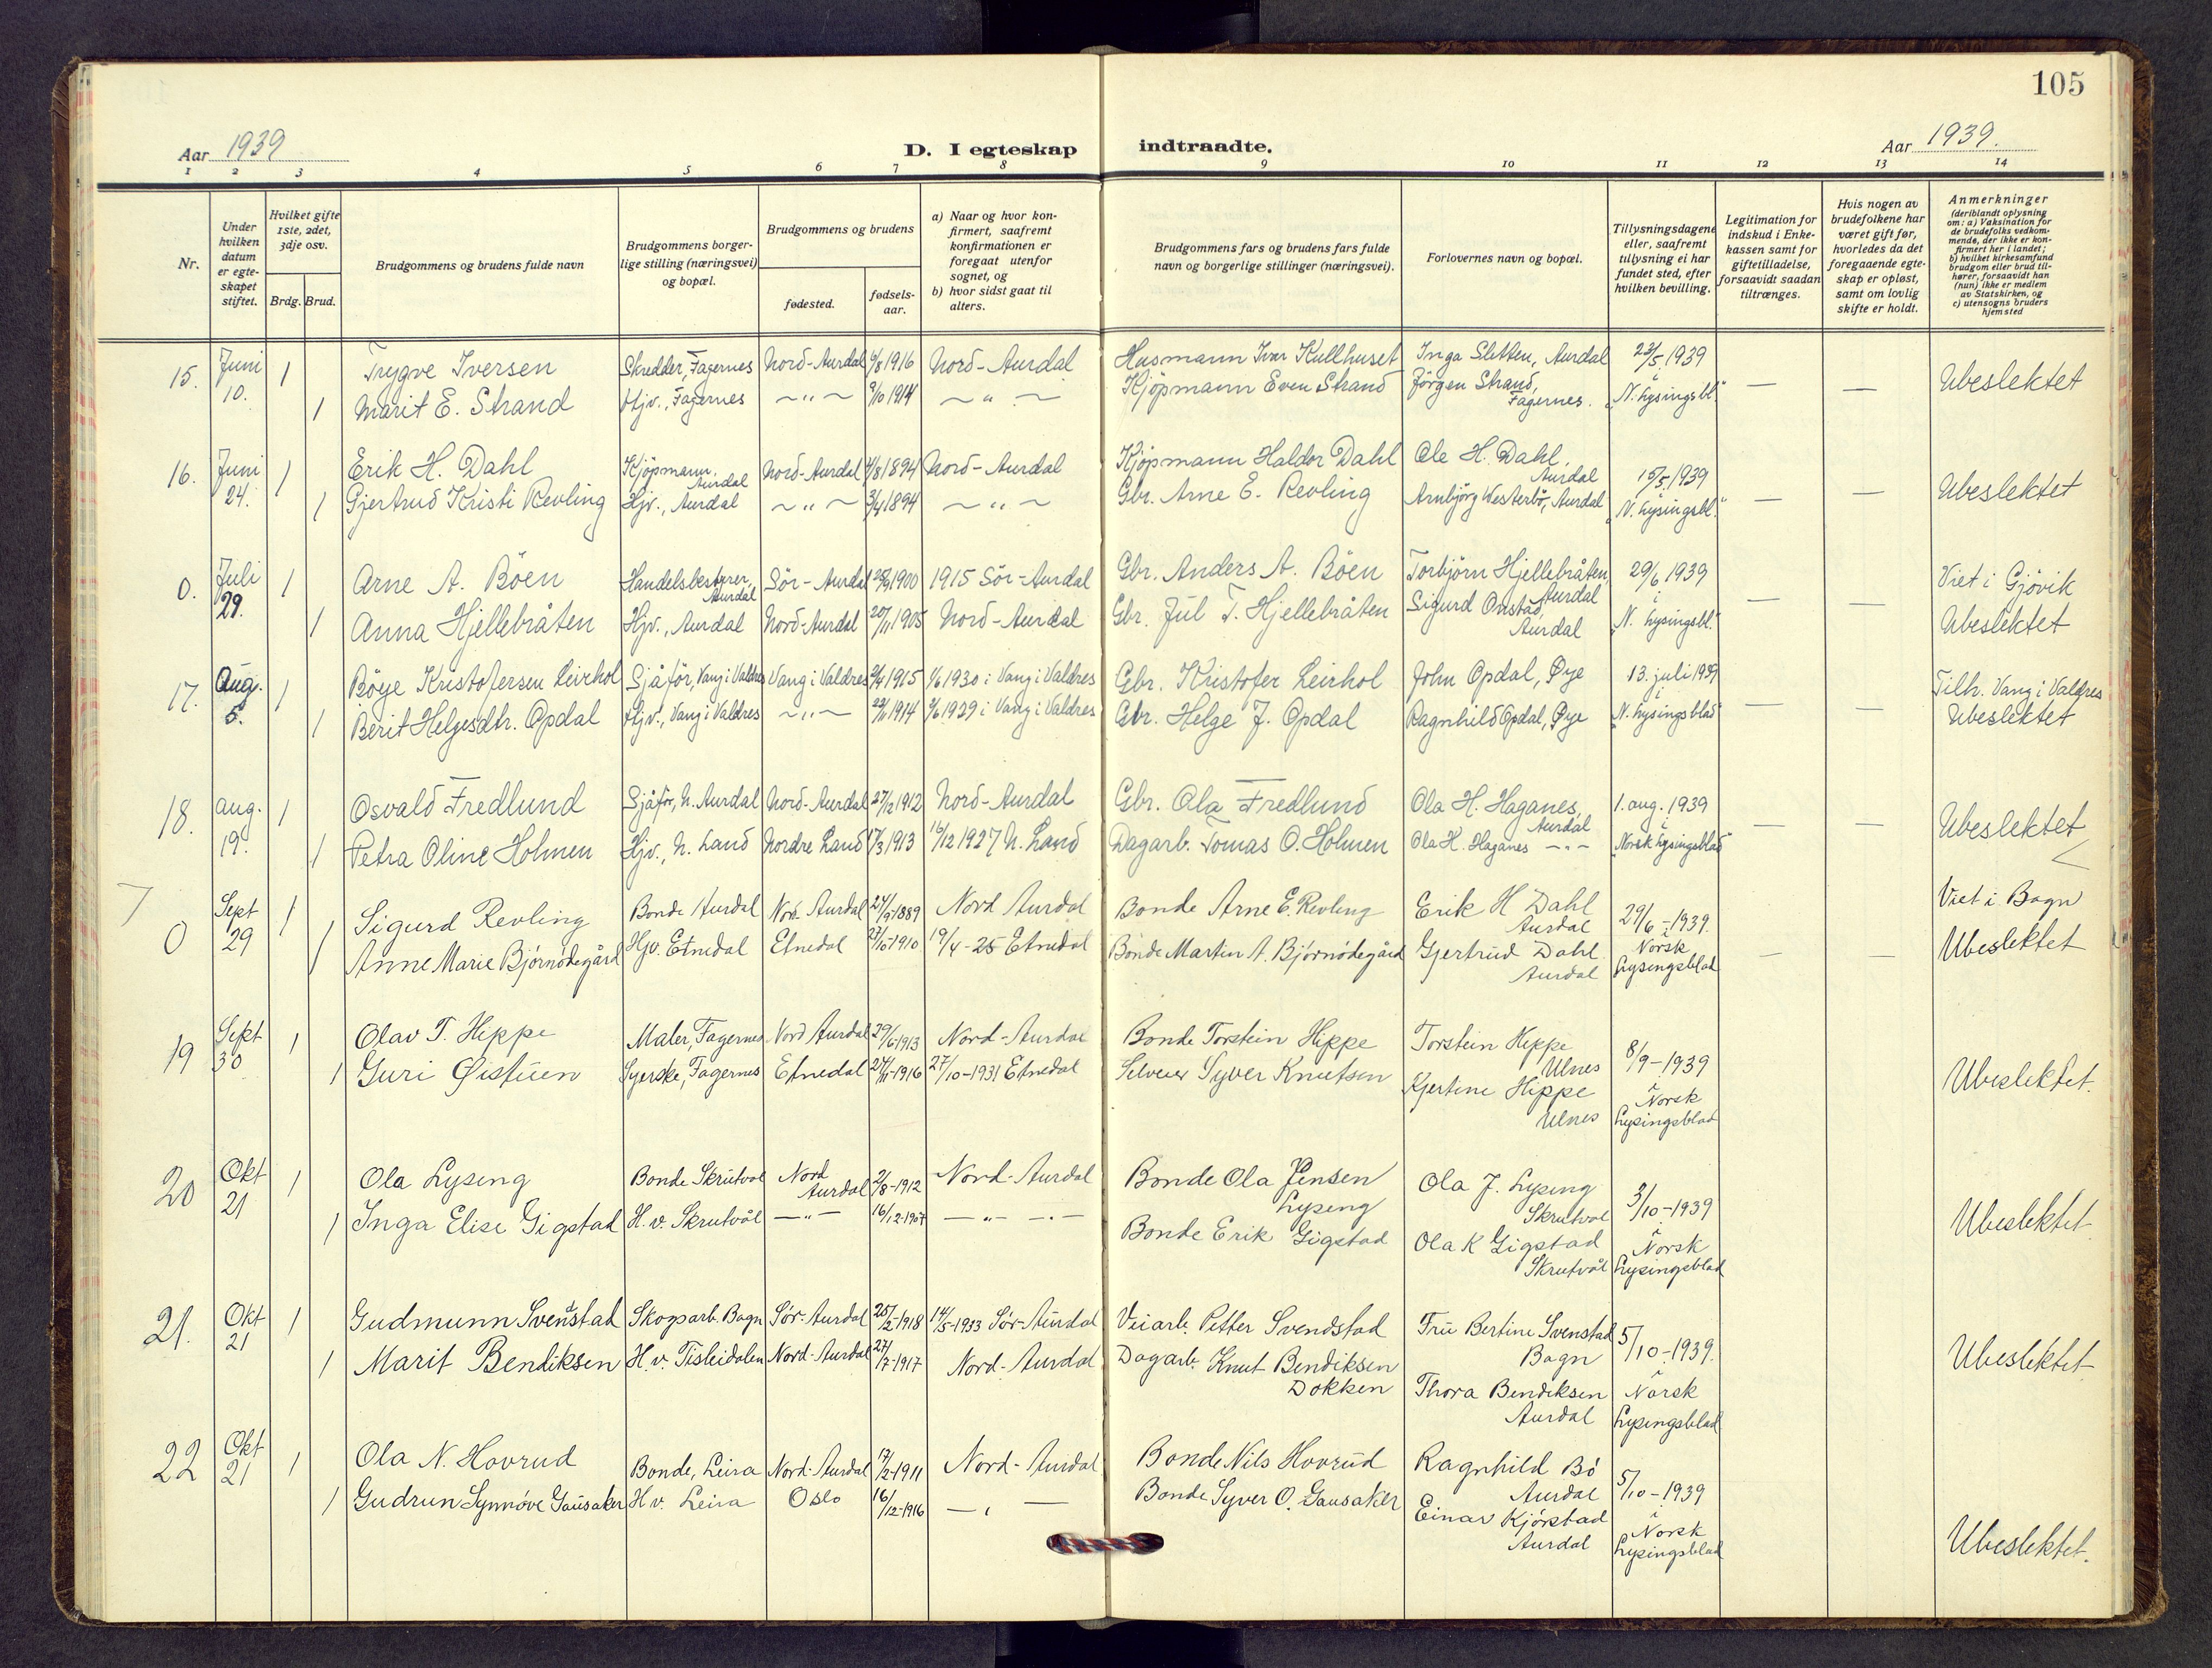 105
Aar 1939
D. I egteskap indtraadte.
Aar 1939.
1 2 3 4 5 6 7 8 9 10 11 12 13 14
Nr.
Under hvilken datum er egte-skapet stiftet.
Hvilket gifte 1ste, 2det, 3dje osv.
Brdg. Brud.
Brudgommens og brudens fulde navn
Brudgommens borger-lige stilling (næringsvei) og bopæl.
Brudgommens og brudens
fødested.
fødsels-aar.
a) Naar og hvor kon-firmert, saafremt konfirmationen er foregaat utenfor sognet, og
b) hvor sidst gaat til alters.
Brudgommens fars og brudens fars fulde navn og borgerlige stillinger (næringsvei).
Forlovernes navn og bopæl.
Tillysningsdagene eller, saafremt tillysning ei har fundet sted, efter hvilken bevilling.
Legitimation for indskud i Enke-kassen samt for giftetilladelse, forsaavidt saadan tiltrænges.
Hvis nogen av brudefolkene har været gift før, hvorledes da det foregaaende egte-skap er opløst, samt om lovlig skifte er holdt.
Anmerkninger (deriblandt oplysning om: a) Vaksination for de brudefolks vedkom-mende, der ikke er kon-firmert her i landet; b) hvilket kirkesamfund brudgom eller brud til-hører, forsaavidt han (hun) ikke er medlem av Statskirken, og c) utensogns bruders hjemsted
15. Juni 10. 1 Trygve Iversen Skredder, Fagernes Nord-Aurdal 6/8 1916 Nord-Aurdal Husmann Ivar Kullhuset Inga Sletten, Aurdal 23/5 1939 — — Ubeslektet
1 Marit E. Strand Hjv., Fagernes ~ " ~ 9/10 1914 ~ " ~ Kjöpmann Even Strand Jörgen Strand, Fagernes. i "N. Lysingsbl."
16. Juni 24. 1 Erik H. Dahl Kjöpmann, Aurdal Nord-Aurdal 4/8 1894 Nord-Aurdal Kjöpmann Haldor Dahl Ole H. Dahl, Aurdal 15/5 1939 — — Ubeslektet
1 Gjertrud Kristi Revling Hjv., Aurdal ~ " ~ 3/4 1894 ~ " ~ Gbr. Arne E. Revling Arnbjörg Westerbö, Aurdal i "N. Lysingsbl."
0. Juli 29. 1 Arne A. Böen Handelsbestyrer, Aurdal Sör-Aurdal 1900 1915 Sör-Aurdal Gbr. Anders A. Böen Torbjörn Hjellebråten, Aurdal 29/6 1939 — — Viet i Gjövik
1 Anna Hjellebråten Hjv., Aurdal Nord-Aurdal 20/11 1905 Nord-Aurdal Gbr. Jul T. Hjellebråten Sigurd Onstad, Aurdal i "N. Lysingsbl." Ubeslektet
17. Aug. 5. 1 Böye Kristofersen Leirhol Sjåför, Vang i Valdres Vang i Valdres 1915 1/6 1930 i Vang i Valdres Gbr. Kristofer Leirhol John Opdal, Øye 13. juli 1939 — — Tilh. Vang i Valdres
1 Berit Helgesdtr. Opdal Hjv., Vang i Valdres ~ " ~ 1914 1929 i Vang i Valdres Gbr. Helge J. Opdal Ragnhild Opdal, Øye i "N. Lysingsblad" Ubeslektet
18. aug. 19. 1 Osvald Fredlund Sjåför, N. Aurdal Nord-Aurdal 27/2 1912 Nord-Aurdal Gbr. Ola Fredlund Ola H. Haganes, Aurdal 1. aug. 1939 — — Ubeslektet
1 Petra Oline Holmen Hjv., N. Land Nordre Land 17/3 1913 16/12 1927 N. Land Dagarb. Tomas O. Holmen Ola H. Haganes ~ " ~ i "Norsk Lysingsblad"
0 Sept 29 1 Sigurd Revling Bonde Aurdal Nord Aurdal 27/9-1889 Nord Aurdal Bonde Arne E. Revling Erik H Dahl Aurdal 29/6-1939. — — Viet i Bagn
1 Anne Marie Bjørnødegård Hjv. Etnedal Etnedal 27/10-1910 19/4-25 Etnedal Bonde Martin A. Bjørnødegård Gjertrud Dahl Aurdal i Norsk Lysingsblad Ubeslektet
19 Sept 30 1 Olav T. Hippe Maler, Fagernes Nord Aurdal 29/6-1913 Nord-Aurdal Bonde Torstein Hippe Torstein Hippe Ulnes 8/9-1939
1 Guri Øistuen Syerske, Fagernes Etnedal 24/11-1916 27/10-1931 Etnedal Selveier Syver Knutsen Kjertine Hippe Ulnes i Norsk Lysingsblad Ubeslektet.
20 Okt 21 1 Ola Lyseng Bonde Skrutvol Nord Aurdal 2/8-1912 Nord-Aurdal Bonde Ola Jensen Lyseng Ola J. Lyseng Skrutvol 3/10-1939
1 Inga Elise Gigstad H.v. Skrutvål — " — 16/12-1907 — " — Bonde Erik Gigstad Ola K Gigstad Skrutvål i Norsk Lysingsblad Ubeslektet
21. Okt 21 1 Gudmunn Svendstad Skogsarb. Bagn Sør-Aurdal 25/2-1918 14/5-1933 Sør-Aurdal Veiarb. Petter Svendstad Fru Bertine Svenstad Bagn 5/10-1939.
1 Marit Bendiksen H.v. Tisleidalen Nord-Aurdal 27/2-1917 Nord-Aurdal Dagarb. Knut Bendiksen Dokken Thora Bendiksen Aurdal i Norsk Lysingsblad Ubeslektet.
22 Okt 21 1 Ola N. Hovrud Bonde, Leira Nord-Aurdal 17/2-1911 Nord-Aurdal Bonde Nils Hovrud Ragnhild Bø Aurdal 5/10-1939
1 Gudrun Synnøve Gausaker H v. Leira Oslo 16/12-1916 — " — Bonde Syver O. Gausaker Einar Kjørstad Aurdal i Norsk Lysingsblad Ubeslektet.